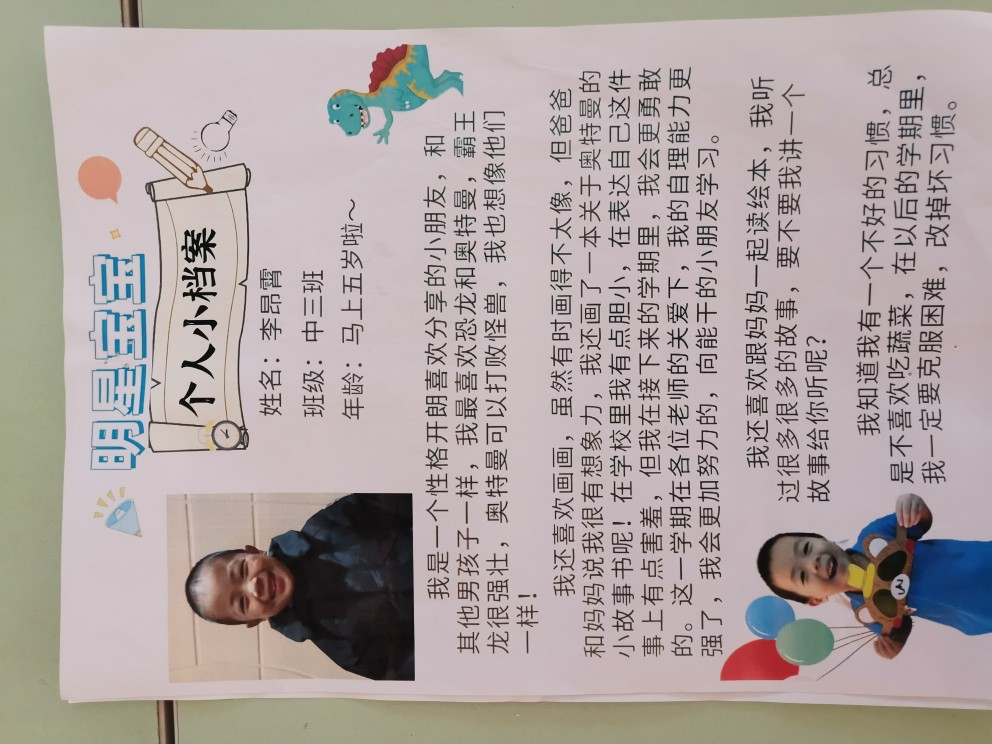 明星宝宝
个人小档案
姓名：李昂霄
班级：中三班
年龄：马上五岁啦～
我是一个性格开朗喜欢分享的小朋友，和
其他男孩子一样，我最喜欢恐龙和奥特曼，霸王
龙很强壮，奥特曼可以打败怪兽，我也想像他们
一样！
我还喜欢画画，虽然有时画得不太像，但爸爸
和妈妈说我很有想象力，我还画了一本关于奥特曼的
小故事书呢！在学校里我有点胆小，在表达自己这件
事上有点害羞，但我在接下来的学期里，我会更勇敢
的。这一学期在各位老师的关爱下，我的自理能力更
强了，我会更加努力的，向能干的小朋友学习。
我还喜欢跟妈妈一起读绘本，我听
过很多很多的故事，要不要我讲一个
故事给你听呢？
我知道我有一个不好的习惯，总
是不喜欢吃蔬菜，在以后的学期里，
我一定要克服困难，改掉坏习惯。